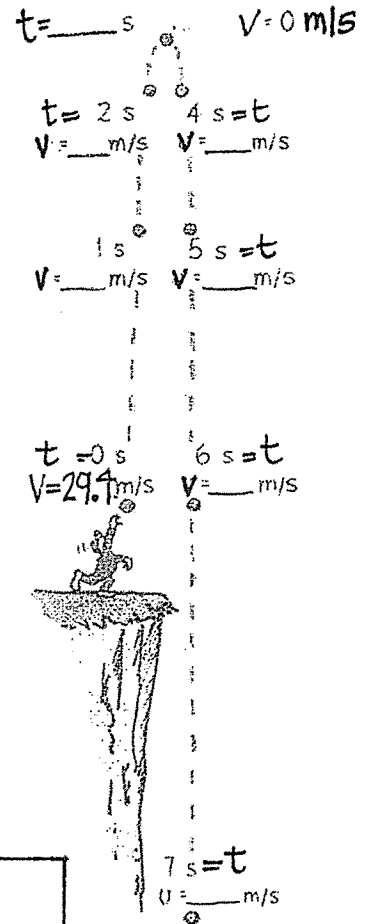 t=____ s V=0 m/s
t= 2 s 4 s=t
V=___m/s V=___m/s
1 s 5 s=t
V=___m/s V=___m/s
t=0 s 6 s=t
V=29.4m/s V=___ m/s
7 s=t
υ=____ m/s